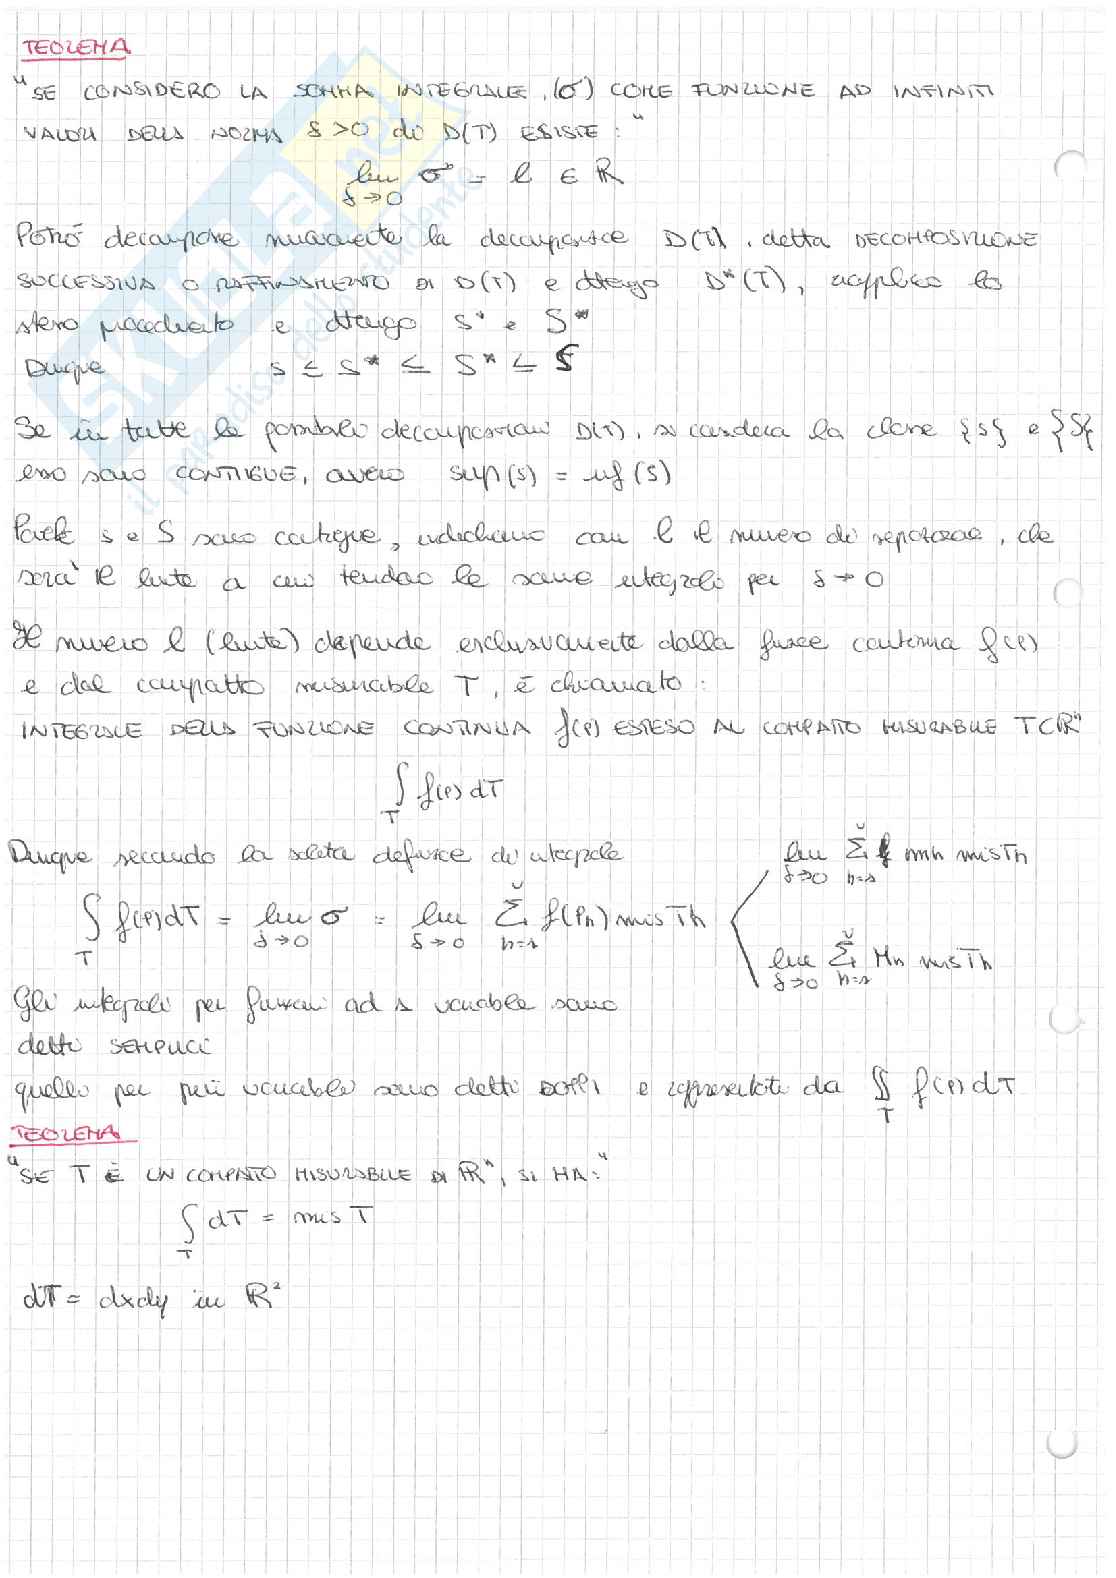 TEOREMA
"SE CONSIDERO LA SOMMA INTEGRALE, (σ) COME FUNZIONE AD INFINITI
VALORI DELLA NORMA δ>0 di D(T) ESISTE:"
lim σ = l ∈ ℝ
δ→0
Potrò decomporre nuovamente la decomposizione D(T), detta DECOMPOSIZIONE
SUCCESSIVA O RAFFINAMENTO DI D(T) e ottengo D*(T), riapplico lo
stesso procedimento e ottengo s* e S*
Dunque s ≤ s* ≤ S* ≤ S
Se in tutte le possibili decomposizioni D(T), si considera la classe {s} e {S}
esse sono CONTIGUE, ovvero sup(s) = inf(S)
Poiché s e S sono contigue, indichiamo con l il numero di separazione, che
sarà il limite a cui tendono le somme integrali per δ→0
Il numero l (limite) dipende esclusivamente dalla funzione continua f(P)
e dal compatto misurabile T, è chiamato:
INTEGRALE DELLA FUNZIONE CONTINUA f(P) ESTESO AL COMPATTO MISURABILE T⊂ℝⁿ
∫_T f(P) dT
Dunque secondo la solita definizione di integrale
∫_T f(P) dT = lim_{δ→0} σ = lim_{δ→0} Σ_{h=1}^{ν} f(Ph) mis Th
lim_{δ→0} Σ_{h=1}^{ν} mh mis Th
lim_{δ→0} Σ_{h=1}^{ν} Mh mis Th
Gli integrali per funzioni ad 1 variabile sono
detti SEMPLICI
quelli per più variabili sono detti DOPPI e rappresentati da ∬_T f(P) dT
TEOREMA
"SE T È UN COMPATTO MISURABILE DI ℝⁿ, SI HA:"
∫_T dT = mis T
dT = dxdy in ℝ²
SKUOLA.net
il paradiso dello studente